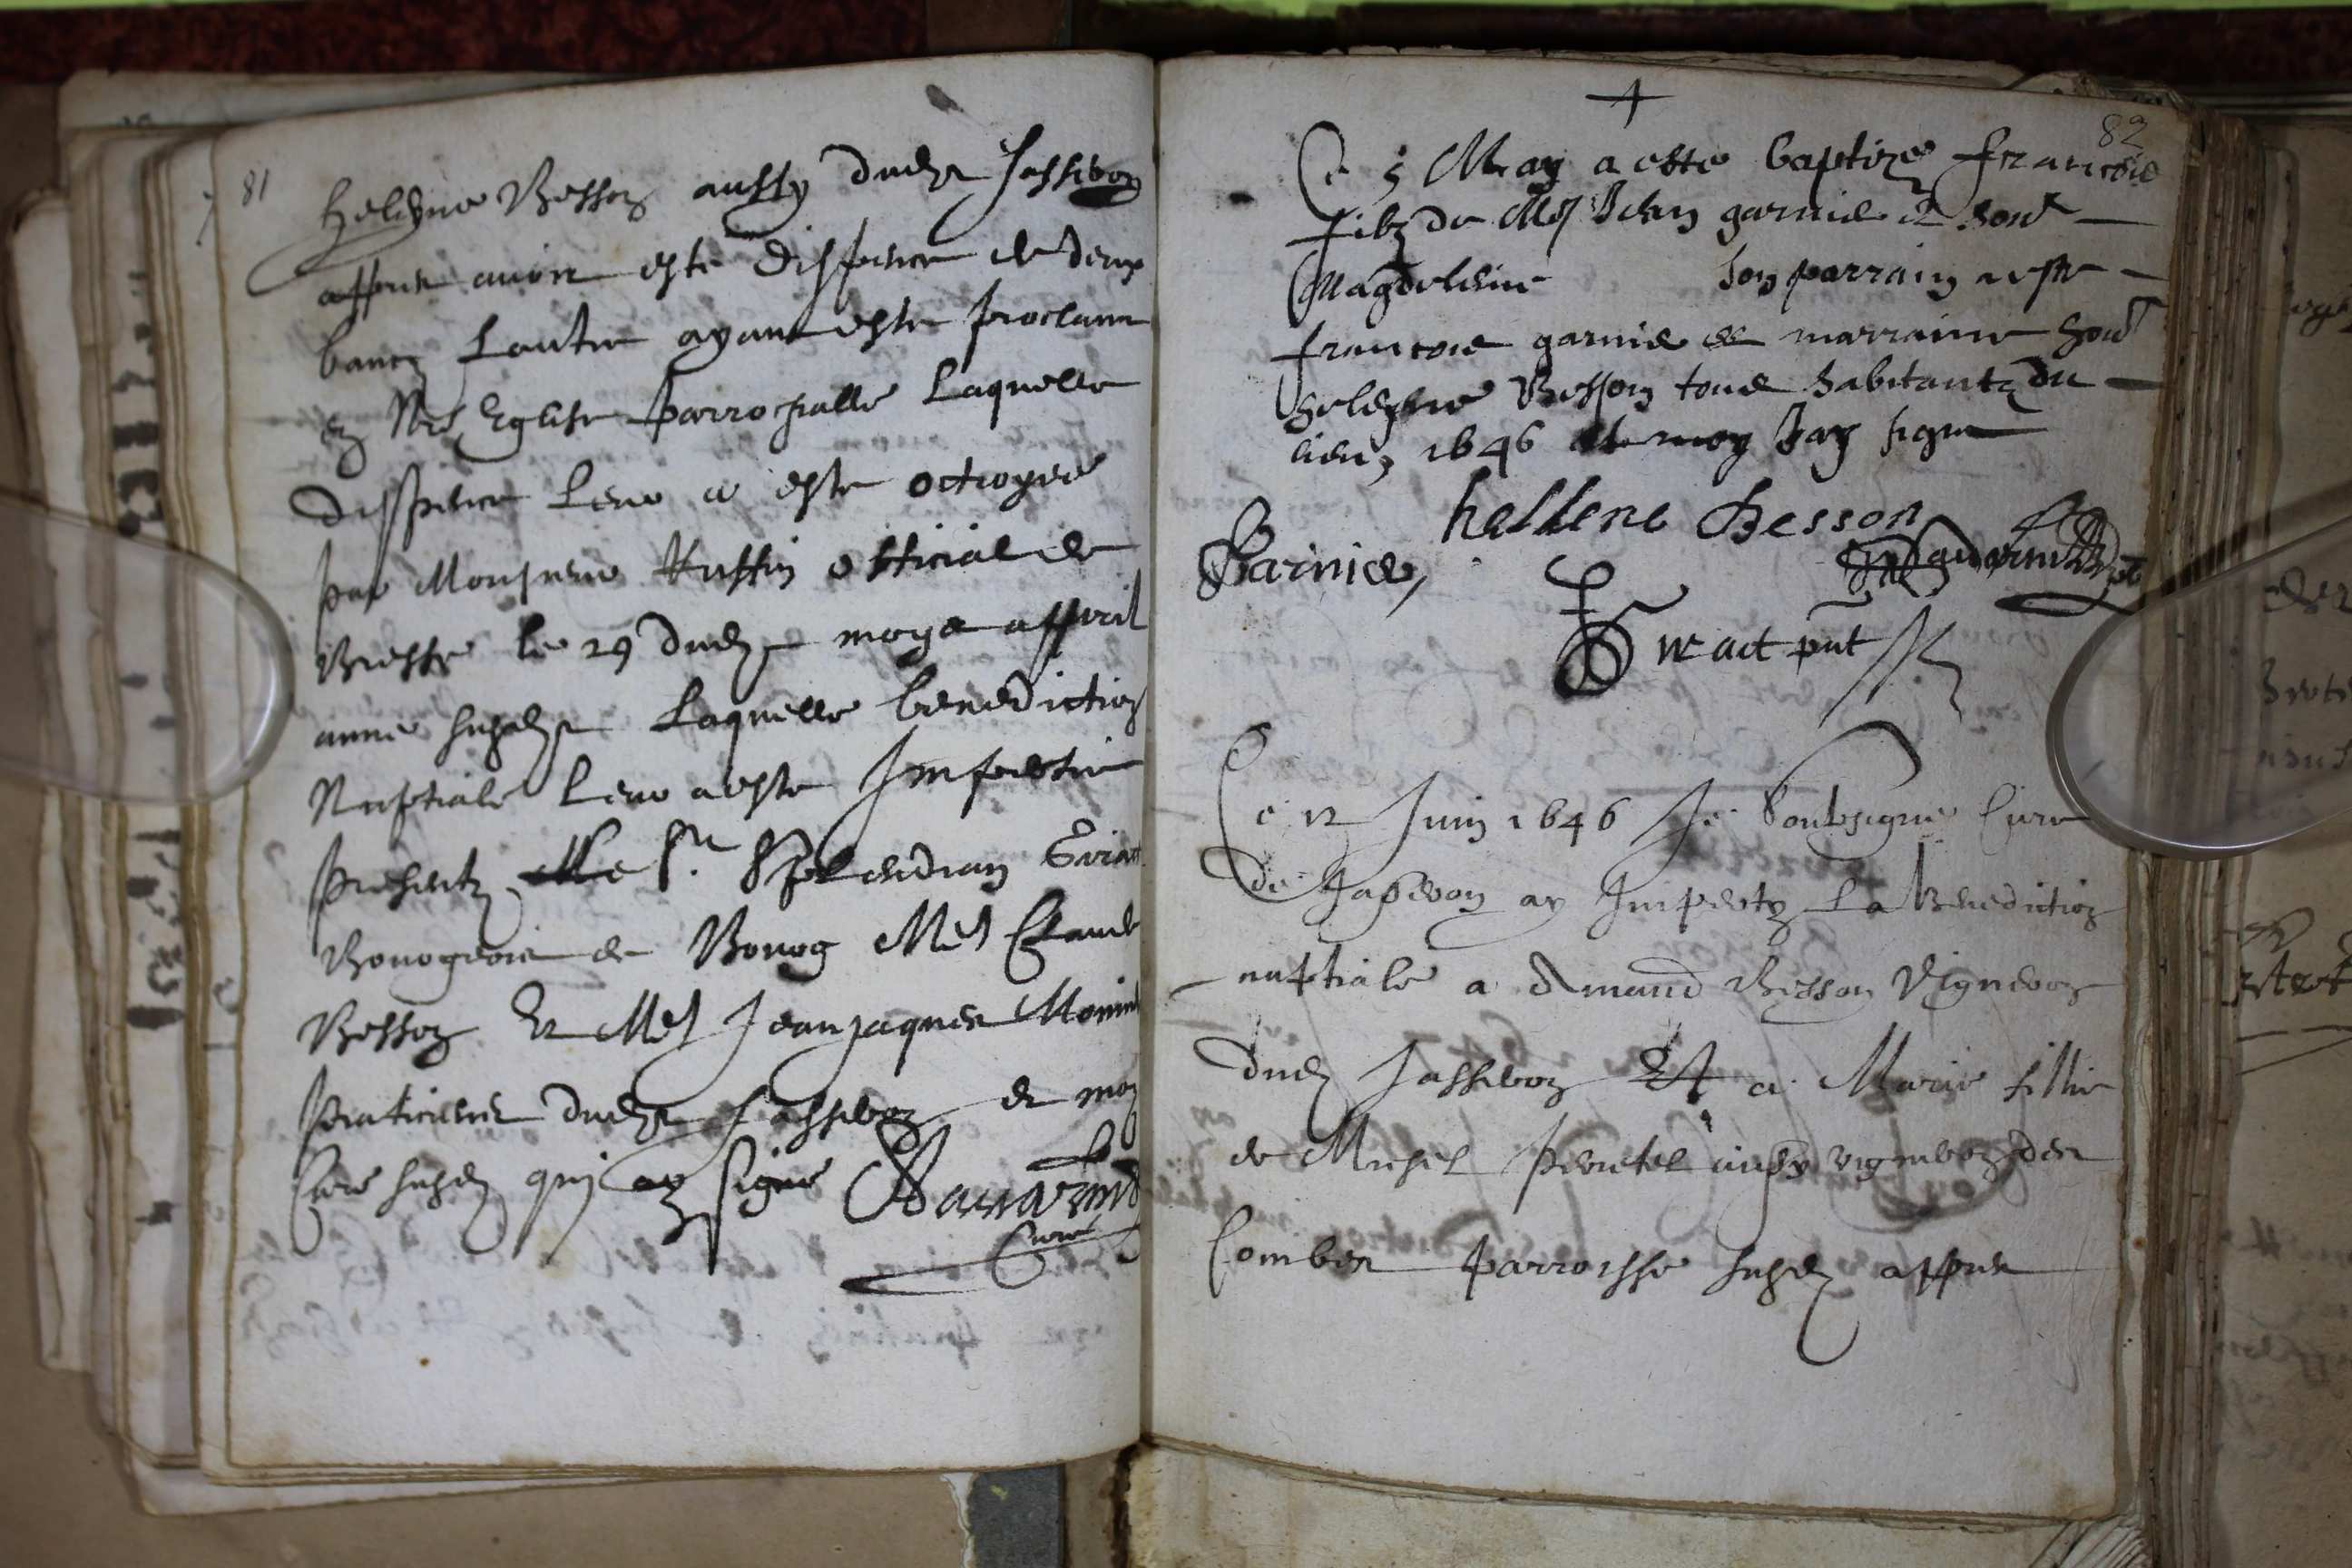 81
heleyne Besson aussy dudt Jasseron
apres avoir este dispence de deux
bancz Lautre ayant este proclame
en Nre Eglise parrochialle Laquelle
dispence leur a este octroyee
par Monsieur Ruffin official de
Bresse le 29 dudt moys appvril
annee susdte Laquelle benediction
Nuptiale leur a este Impertie
presentz Sr.
Bourgeois de Bourg Mes Claude
Besson Et Mes Jean jaques Monin
praticiens dudt Jasseron et moy
Cure susdt qui ay signe
Cure
82
Ce 5 May a este baptize francois
filz de Me Jean garnier et honte
Magdeleine son parrain a este
francois garnier et marraine honte
heleyne Besson tous habitantz du
lieu, 1646 et moy Jay signe
hellene Besson
Garnier,
Ce 12 Juin 1646 Je soubsigne Cure
de Jasseron ay Imperty La Benediction
nuptiale a Amand Besson Vigneron
dudt Jasseron Et a Marie fillie
de Michel Perretel aussy vigneron des
Combes parroisse susdt apres